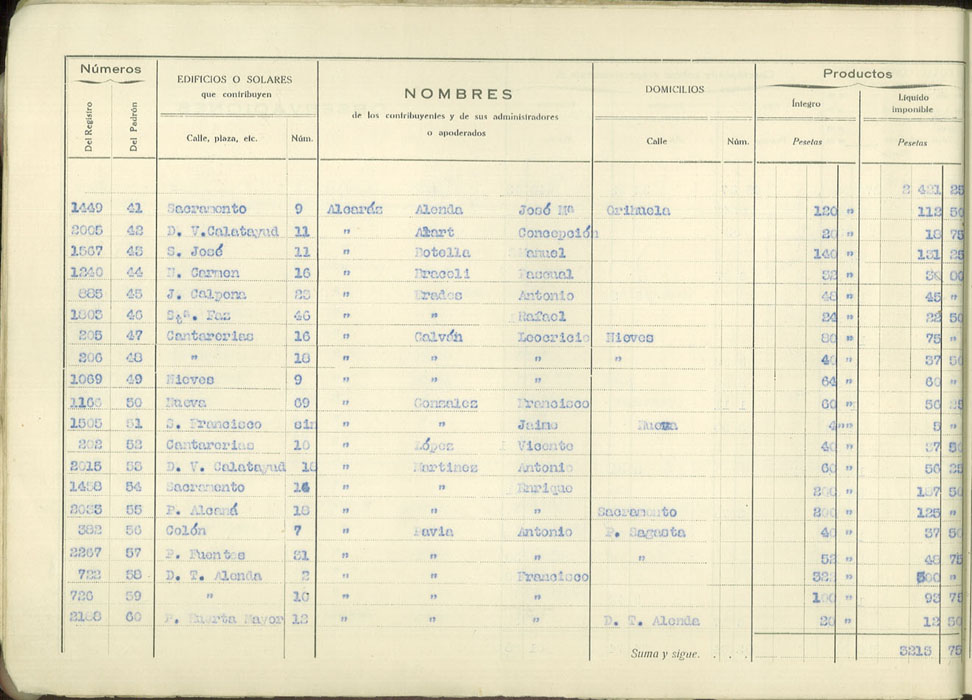 Números
EDIFICIOS O SOLARES
que contribuyen
NOMBRES
de los contribuyentes y de sus administradores
o apoderados
DOMICILIOS
Productos
Íntegro
Líquido
imponible
Del Registro
Del Padrón
Calle, plaza, etc.
Núm.
Calle
Núm.
Pesetas
Pesetas
2 421 25
1449 41 Sacramento 9 Alcarás Alenda José Mª Orihuela 120 " 112 50
2005 42 D. V.Calatayud 11 " Alart Concepción 20 " 18 75
1567 43 S. José 11 " Botella Manuel 140 " 131 25
1240 44 N. Carmen 16 " Braceli Pascual 32 " 00
885 45 J. Calpena 23 " Prades Antonio 48 " 45 "
1803 46 Stª. Faz 46 " " Rafael 24 " 22 50
205 47 Cantarerias 16 " Galvén Leocricio Nieves 80 " 75 "
206 48 " 18 " " " " 40 " 37 50
1069 49 Nieves 9 " " " 64 " 60 "
1166 50 Nueva 69 " Gonzalez Francisco 60 " 56 25
1505 51 S. Francisco sin " " Jaime Nueva 4 "" "
202 52 Cantarerias 10 " López Vicente 40 " 37 50
2015 53 D. V. Calatayud " Martinez Antonio 60 " 56 25
1458 54 Sacramento 14 " " Enrique 200 " 187 50
2035 55 P. Alcaná 18 " " " Sacramento 200 " 125 "
382 56 Colón 7 " Pavia Antonio P. Sagasta 40 " 37 50
2267 57 P. Fuentes 21 " " " " 52 " 48 75
722 58 D. T. Alenda 2 " " Francisco 300 "
726 59 " 16 " " " 100 " 93 75
2188 60 P. Puerta Mayor 12 " " " D. T. Alenda 20 " 12 50
Suma y sigue. 3215 75